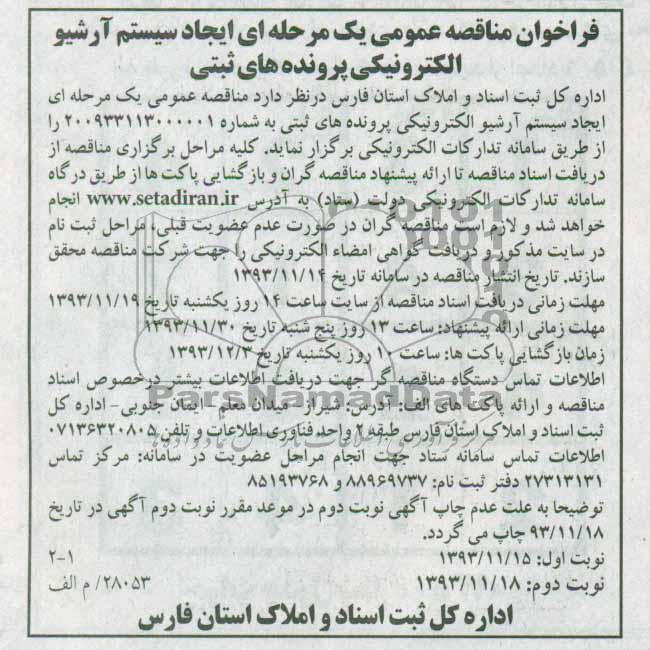 فراخوان مناقصه عمومی یک مرحله ای ایجاد سیستم آرشیو
الکترونیکی پرونده های ثبتی
اداره کل ثبت اسناد و املاک استان فارس درنظر دارد مناقصه عمومی یک مرحله ای
ایجاد سیستم آرشیو الکترونیکی پرونده های ثبتی به شماره ۲۰۰۹۳۳۱۱۳۰۰۰۰۰۱ را
از طریق سامانه تدارکات الکترونیکی برگزار نماید. کلیه مراحل برگزاری مناقصه از
دریافت اسناد مناقصه تا ارائه پیشنهاد مناقصه گران و بازگشایی پاکت ها از طریق درگاه
سامانه تدارکات الکترونیکی دولت (ستاد) به آدرس www.setadiran.ir انجام
خواهد شد و لازم است مناقصه گران در صورت عدم عضویت قبلی، مراحل ثبت نام
در سایت مذکور و دریافت گواهی امضاء الکترونیکی را جهت شرکت مناقصه محقق
سازند. تاریخ انتشار مناقصه در سامانه تاریخ ۱۳۹۳/۱۱/۱۴
مهلت زمانی دریافت اسناد مناقصه از سایت ساعت ۱۴ روز یکشنبه تاریخ ۱۳۹۳/۱۱/۱۹
مهلت زمانی ارائه پیشنهاد: ساعت ۱۳ روز پنج شنبه تاریخ ۱۳۹۳/۱۱/۳۰
زمان بازگشایی پاکت ها: ساعت ۱۰ روز یکشنبه تاریخ ۱۳۹۳/۱۲/۳
اطلاعات تماس دستگاه مناقصه گر جهت دریافت اطلاعات بیشتر درخصوص اسناد
مناقصه و ارائه پاکت های الف: آدرس: شیراز- میدان معلم- ایمان جنوبی- اداره کل
ثبت اسناد و املاک استان فارس طبقه ۲ واحد فناوری اطلاعات و تلفن ۰۷۱۳۶۳۲۰۸۰۵
اطلاعات تماس سامانه ستاد جهت انجام مراحل عضویت در سامانه: مرکز تماس
۲۷۳۱۳۱۳۱ دفتر ثبت نام: ۸۸۹۶۹۷۳۷ و ۸۵۱۹۳۷۶۸
توضیحا به علت عدم چاپ آگهی نوبت دوم در موعد مقرر نوبت دوم آگهی در تاریخ
۹۳/۱۱/۱۸ چاپ می گردد.
نوبت اول: ۱۳۹۳/۱۱/۱۵ ۲-۱
نوبت دوم: ۱۳۹۳/۱۱/۱۸ ۲۸۰۵۳/ م الف
اداره کل ثبت اسناد و املاک استان فارس
ParsNamadData